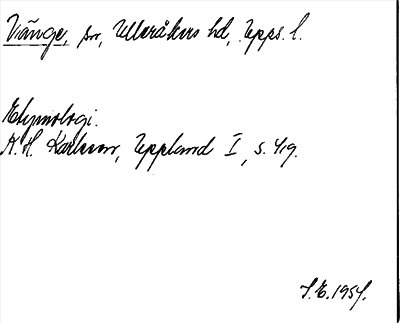 Vänge, sn, Ulleråkers hd, Upps. l.
Etymologi.
K. H. Karlsson, Uppland I, s. 419.
S.E. 1954.